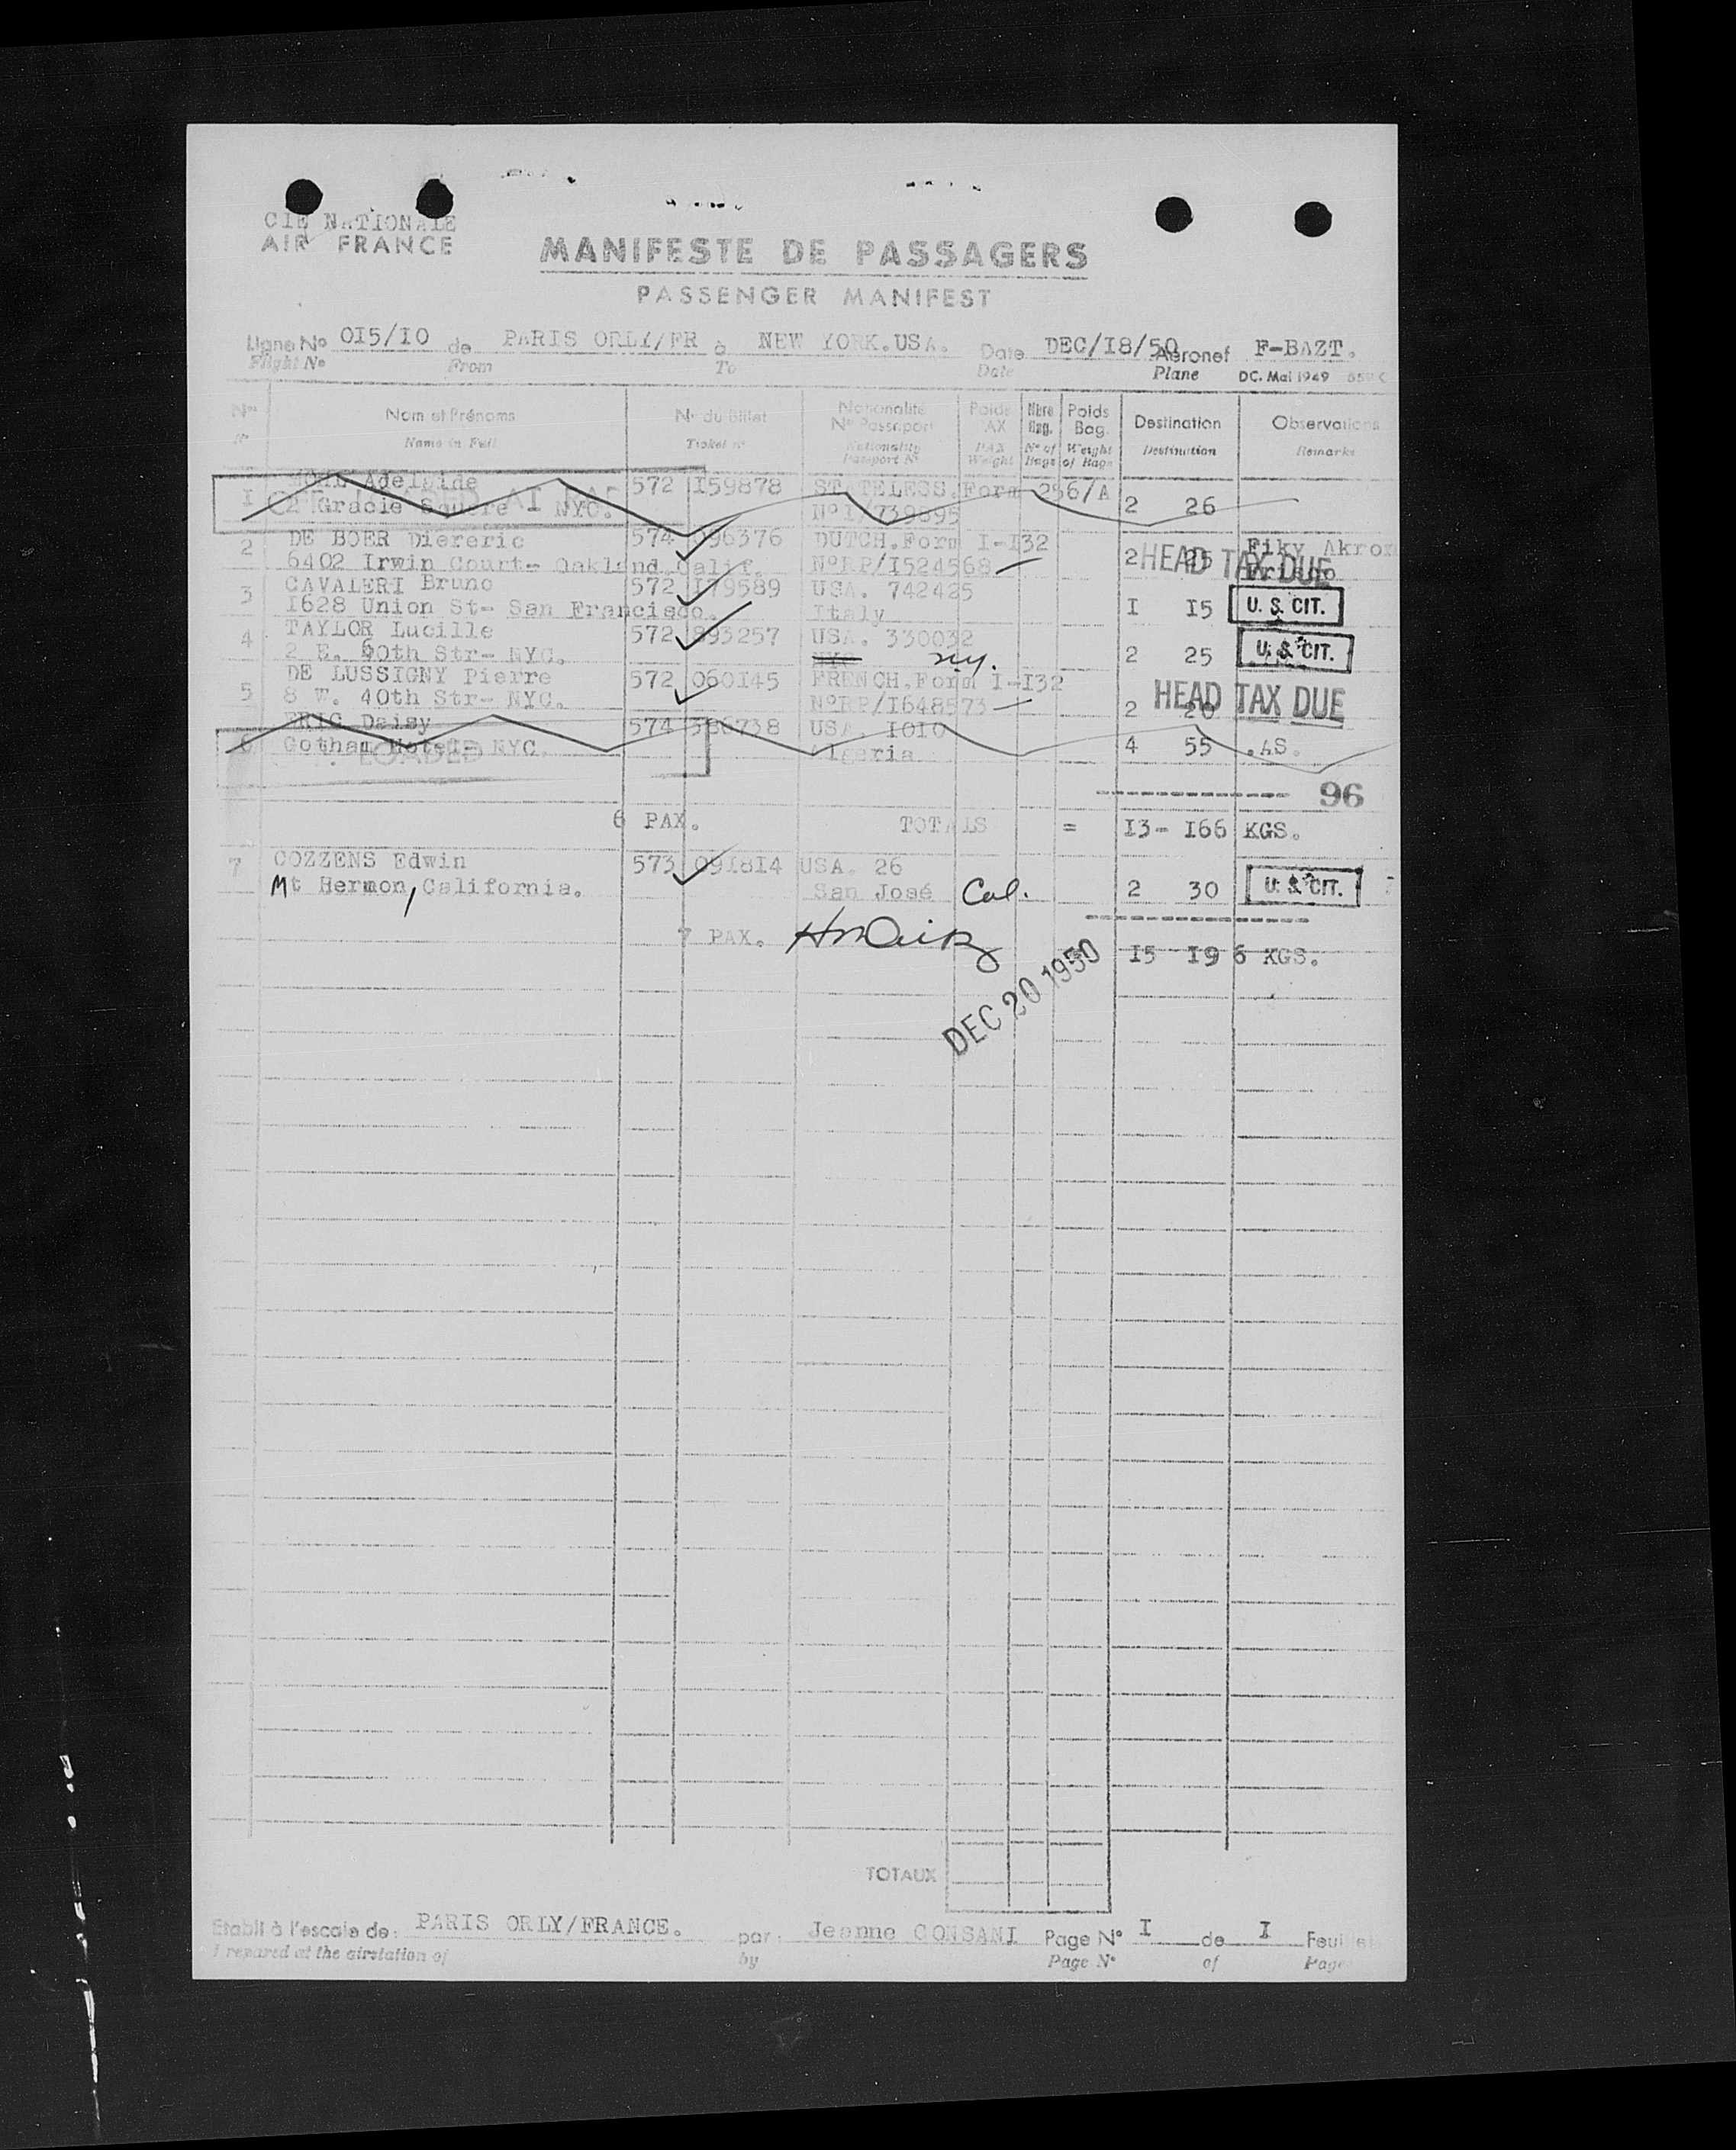 CIE NATIONALE
AIR FRANCE
MANIFESTE DE PASSAGERS
PASSENGER MANIFEST
Ligne No OI5/IO de PARIS ORLY/FR à NEW YORK.USA. Date DEC/I8/50 Aéronef F-BAZT.
Flight No From To Date Plane DC. Mai 1949
Nos Nom et Prénoms No du Billet Nationalité No Passeport Poids PAX Nbre Bag. Poids Bag. Destination Observations
No Name in Full Ticket no Nationality Passport No PAX Weight No of Bags Weight of Bags Destination Remarks
I Adelaide 572 I59878 STATELESS.Form 256/A
Gracie Square NYC. 2 26
2 DE BOER Diereric 574 096376 DUTCH.Form I-I32
6402 Irwin Court- Oakland.Calif. NoRP/I524568 2 25 Fiky Akron
HEAD TAX DUE
3 CAVALERI Bruno 572 I79589 USA. 742425
I628 Union St- San Francisco. Italy I I5 U. S. CIT.
4 TAYLOR Lucille 572 893257 USA. 330032
2 E. 60th Str- NYC. NYC ny. 2 25 U. S. CIT.
5 DE LUSSIGNY Pierre 572 060I45 FRENCH.Form I-I32
8 W. 40th Str- NYC. NoRP/I648573 2 20 HEAD TAX DUE
6 ERIC Daisy 574 386738 USA. IOIO
Gotham Hotel- NYC. Algeria 4 55 .AS.
LOADED
96
6 PAX. TOTALS = I3- I66 KGS.
7 COZZENS Edwin 573 09I8I4 USA. 26
Mt Hermon, California. San José Cal. 2 30 U. S. CIT.
7 PAX. I5 I96 KGS.
DEC 20 1950
TOTAUX
Etabli à l'escale de: PARIS ORLY/FRANCE. par: Jeanne CONSANI Page No I de I Feuillet
Prepared at the airstation of by Page No of Page